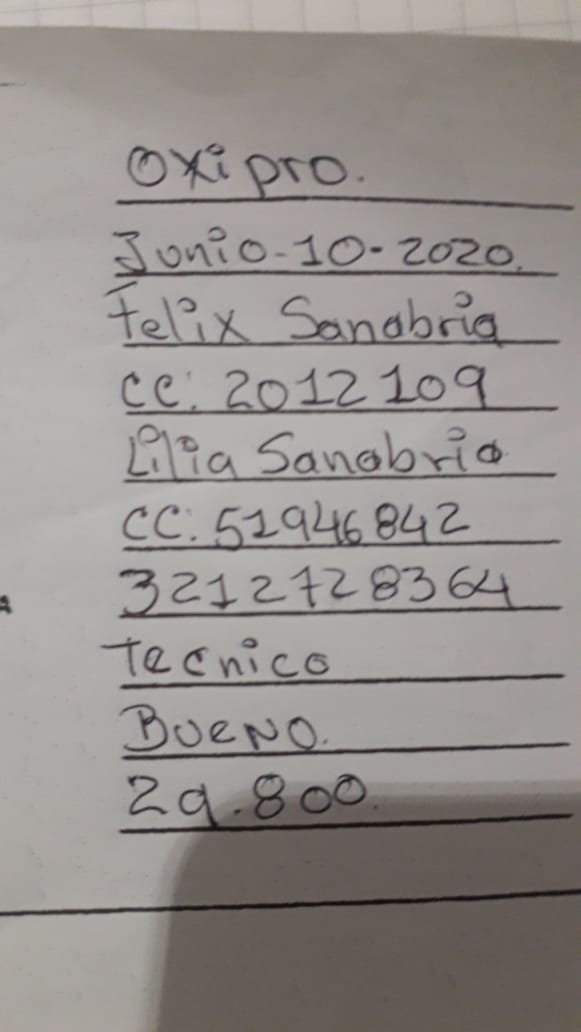 Oxipro.
Junio-10-2020.
Felix Sanabria
CC: 2012109
Lilia Sanabria
CC: 51946842
3212728364
Tecnico
BUENO.
29.800.